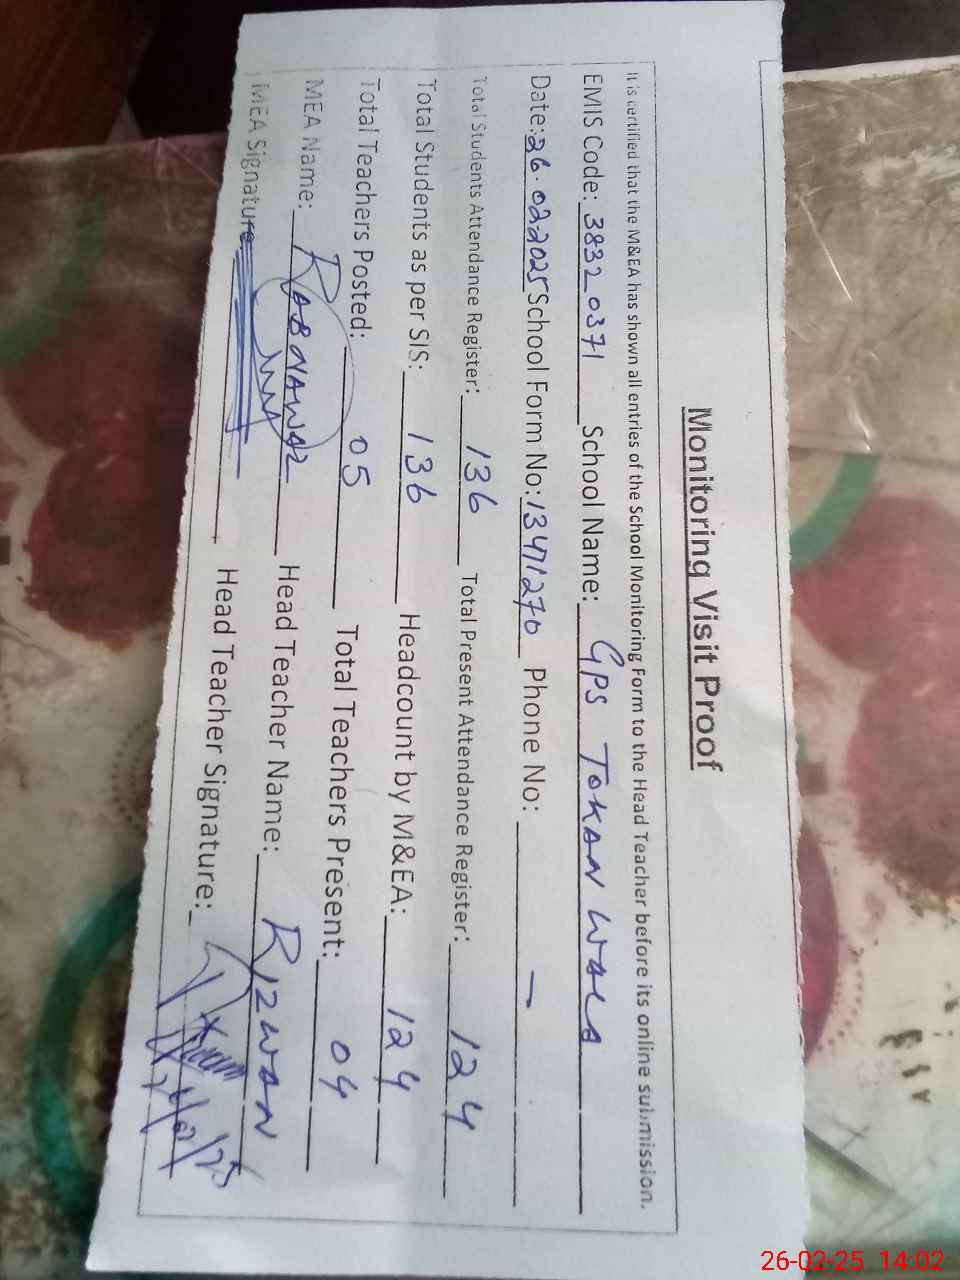 Monitoring Visit Proof
It is certified that the M&EA has shown all entries of the School Monitoring Form to the Head Teacher before its online submission.
EMIS Code: 38320371 School Name: GPS TOKAN WALA
Date: 26.022025 School Form No: 13471270 Phone No: —
Total Students Attendance Register: 136 Total Present Attendance Register: 124
Total Students as per SIS: 136 Headcount by M&EA: 124
Total Teachers Posted: 05 Total Teachers Present: 04
MEA Name: RABNAWAZ Head Teacher Name: RIZWAN
MEA Signature Head Teacher Signature:
26-02-25 14:02